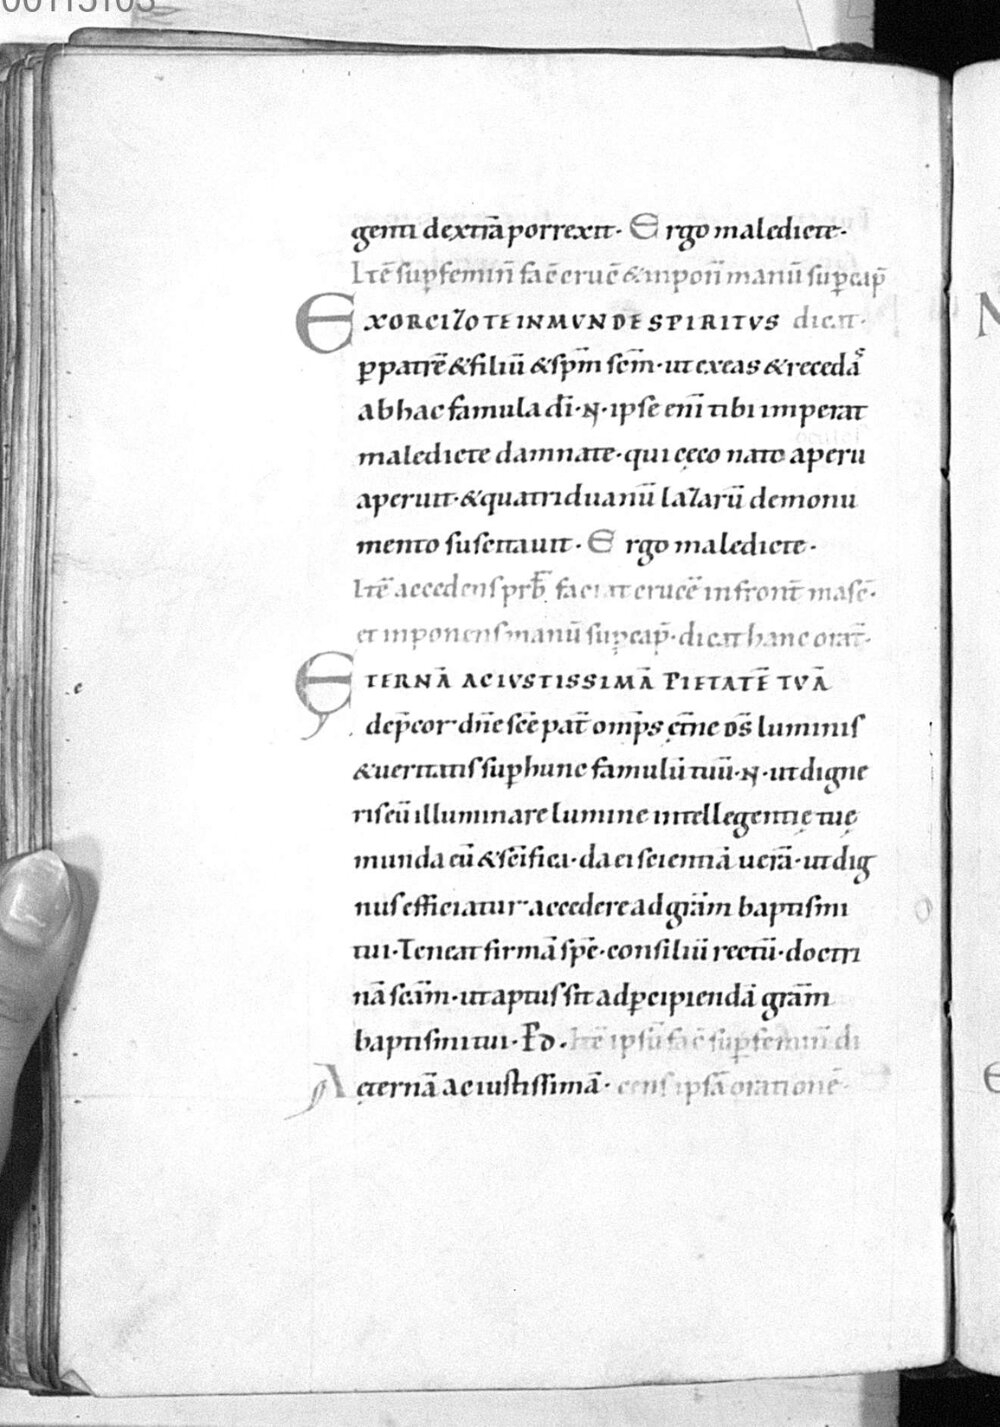 genti dextrā porrexit· Ergo maledicte·
Itē sup femin̄ facē crucē & inpon̄ manū sup cap̄
EXORCIZO TE INMVNDE SPIRITVS dicat·
p patrē & filiū & spm̄ scm̄· ut exeas & recedaˢ
ab hac famula dī· N· ipse enī tibi imperat
maledicte damnate· qui cęco nato aperu
aperuit· & quatriduanū lazarū demonu
mento suscitauit· Ergo maledicte·
Itē accedens prb̄ faciat crucē in front̄ masc̄·
et inponens manū sup cap̄· dicat hanc orat̄·
ĘTERNĀ AC IVSTISSIMĀ PIETATĒ TVĀ
dep̄cor dn̄e scē pat̄ omp̄s ęt̄ne ds̄ luminis
& ueritatis sup hunc famulū tuū· N· ut digne
ris eū illuminare lumine intellegentię tuę
munda eū & scīfica· da ei scientiā uerā· ut dig
nus efficiatur accedere ad grām baptismi
tui· Teneat firmā spē· consiliū rectū· doctri
nā scām· ut aptus sit ad p̄cipiendā grām
baptismi tui· P̄ d̄· Itē ipsū fac̄ sup femin̄ di
Aęternā ac iustissimā· cens ipsā orationē·